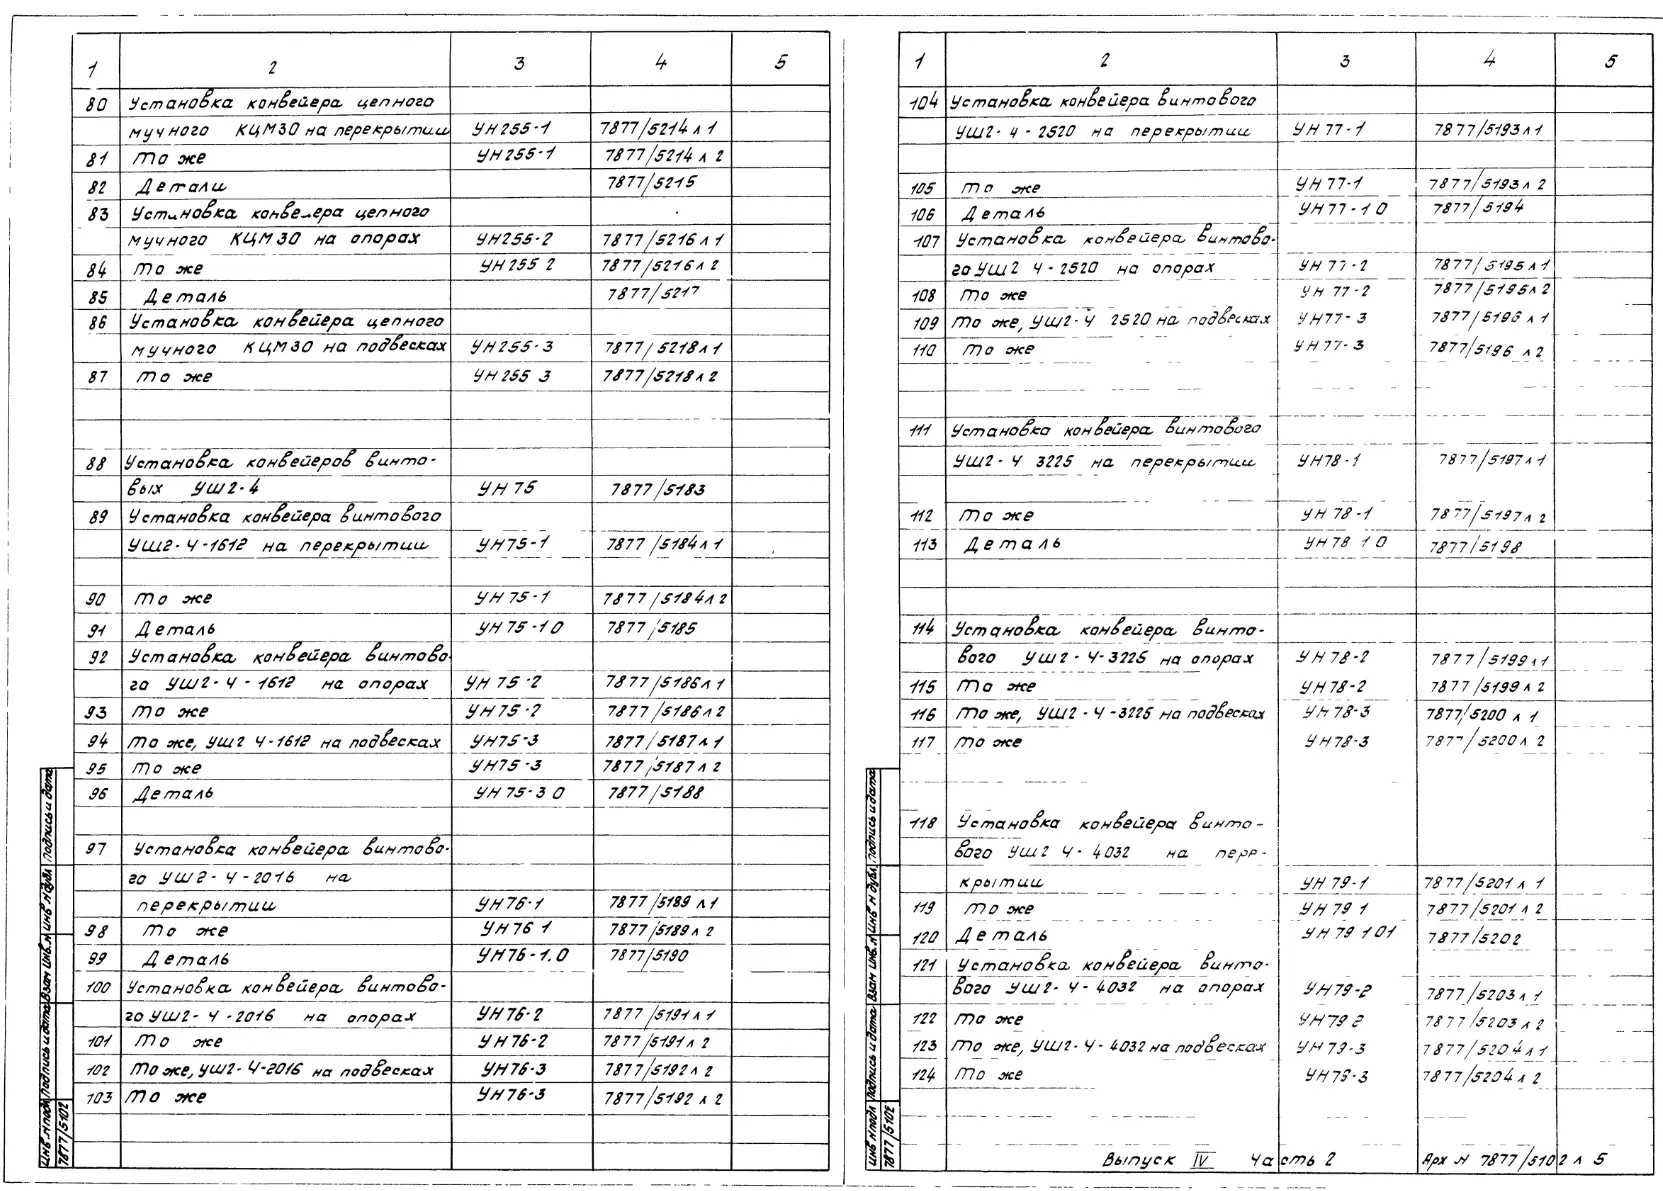 1 2 3 4 5
80 Установка конвейера цепного
мучного КЦМ30 на перекрытии УН255-1 7877/5214 л 1
81 То же УН255-1 7877/5214 л 2
82 Детали 7877/5215
83 Установка конвейера цепного
мучного КЦМ30 на опорах УН255-2 7877/5216 л 1
84 То же УН255 2 7877/5216 л 2
85 Деталь 7877/5217
86 Установка конвейера цепного
мучного КЦМ30 на подвесках УН255-3 7877/5218 л 1
87 То же УН255 3 7877/5218 л 2
88 Установка конвейеров винто-
вых УШ2-4 УН 75 7877/5183
89 Установка конвейера винтового
УШ2-Ч-1612 на перекрытии УН75-1 7877/5184 л 1
90 То же УН 75-1 7877/5184 л 2
91 Деталь УН 75-1 0 7877/5185
92 Установка конвейера винтово-
го УШ2-Ч-1612 на опорах УН 75-2 7877/5186 л 1
93 То же УН75-2 7877/5186 л 2
94 То же, УШ2 Ч-1612 на подвесках УН75-3 7877/5187 л 1
95 То же УН75-3 7877/5187 л 2
96 Деталь УН 75-3 0 7877/5188
97 Установка конвейера винтово-
го УШ2-Ч-2016 на
перекрытии УН76-1 7877/5189 л 1
98 То же УН76 1 7877/5189 л 2
99 Деталь УН76-1.0 7877/5190
100 Установка конвейера винтово-
го УШ2-Ч-2016 на опорах УН76-2 7877/5191 л 1
101 То же УН76-2 7877/5191 л 2
102 То же, УШ2-Ч-2016 на подвесках УН76-3 7877/5192 л 2
103 То же УН76-3 7877/5192 л 2
Инв.№подл Подпись и дата Взам инв.№ Инв №дубл Подпись и дата
7877/5102
1 2 3 4 5
104 Установка конвейера винтового
УШ2-Ч-2520 на перекрытии УН 77-1 7877/5193 л 1
105 То же УН 77-1 7877/5193 л 2
106 Деталь УН77-1 0 7877/5194
107 Установка конвейера винтово-
го УШ2 Ч-2520 на опорах УН 77-2 7877/5195 л 1
108 То же УН 77-2 7877/5195 л 2
109 То же, УШ2-Ч 2520 на подвесках УН77-3 7877/5196 л 1
110 То же УН 77-3 7877/5196 л 2
111 Установка конвейера винтового
УШ2-Ч 3225 на перекрытии УН78-1 7877/5197 л 1
112 То же УН 78-1 7877/5197 л 2
113 Деталь УН78 1 0 7877/5198
114 Установка конвейера винто-
вого УШ2-Ч-3225 на опорах УН78-2 7877/5199 л 1
115 То же УН78-2 7877/5199 л 2
116 То же, УШ2-Ч-3225 на подвесках УН 78-3 7877/5200 л 1
117 То же УН78-3 7877/5200 л 2
118 Установка конвейера винто-
вого УШ2 Ч-4032 на пере-
крытии УН 79-1 7877/5201 л 1
119 То же УН 79 1 7877/5201 л 2
120 Деталь УН 79 1 01 7877/5202
121 Установка конвейера винто-
вого УШ2-Ч-4032 на опорах УН79-2 7877/5203 л 1
122 То же УН79 2 7877/5203 л 2
123 То же, УШ2-Ч-4032 на подвесках УН79-3 7877/5204 л 1
124 То же УН79-3 7877/5204 л 2
Инв №подл Подпись и дата Взам инв.№ Инв № дубл Подпись и дата
7877/5102
Выпуск IV Часть 2 Арх № 7877/5102 л 5